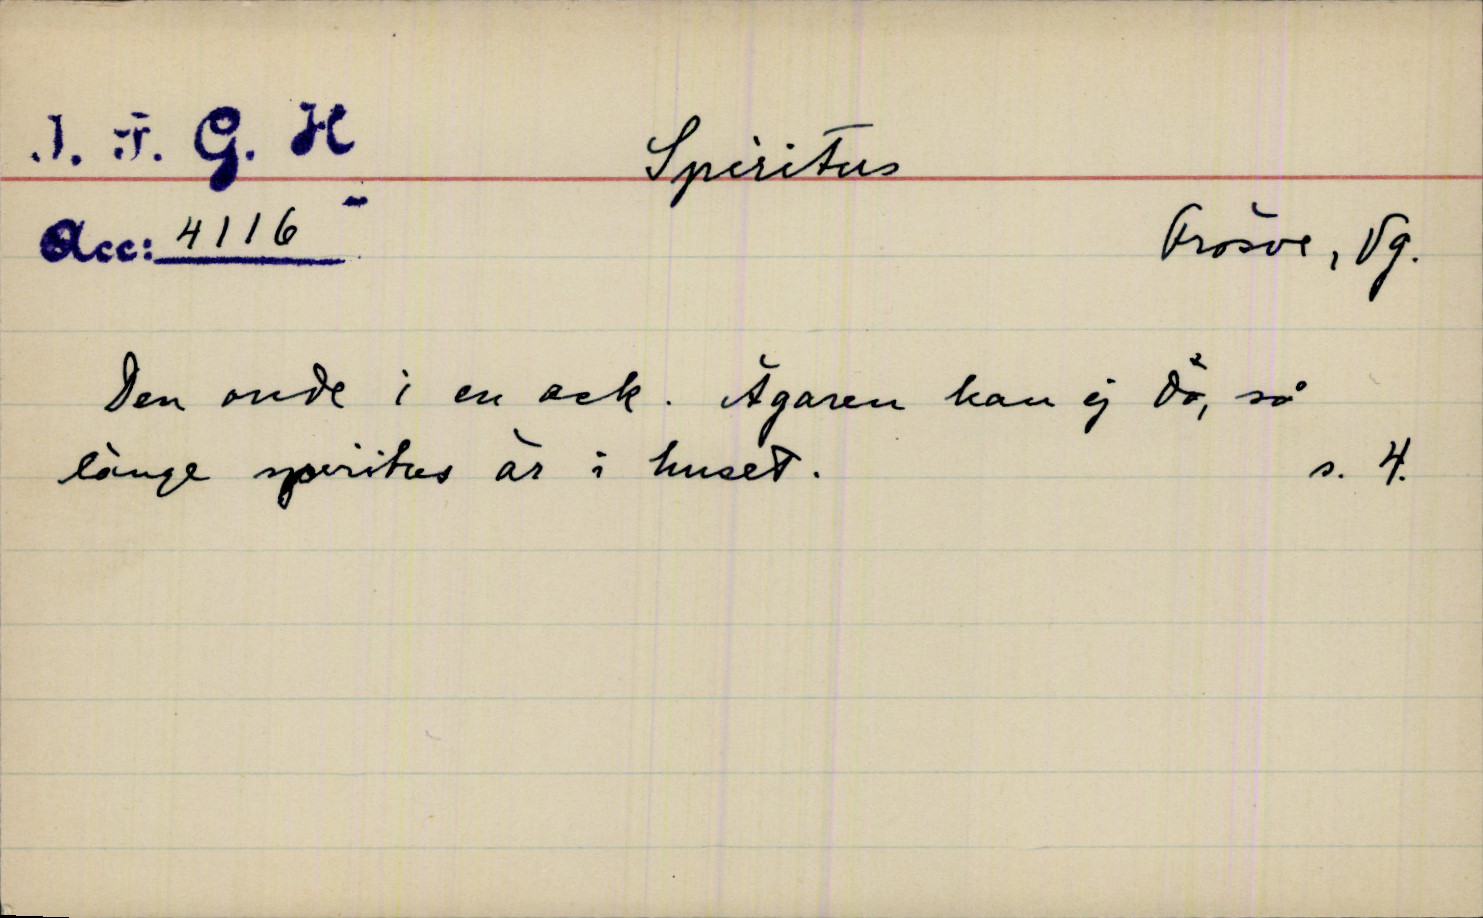 I. F. G. H
Spiritus
Acc: 4116
Frösve, Vg.
Den onde i en ask. Ägaren kan ej dö, så
länge spiritus är i huset. s. 4.